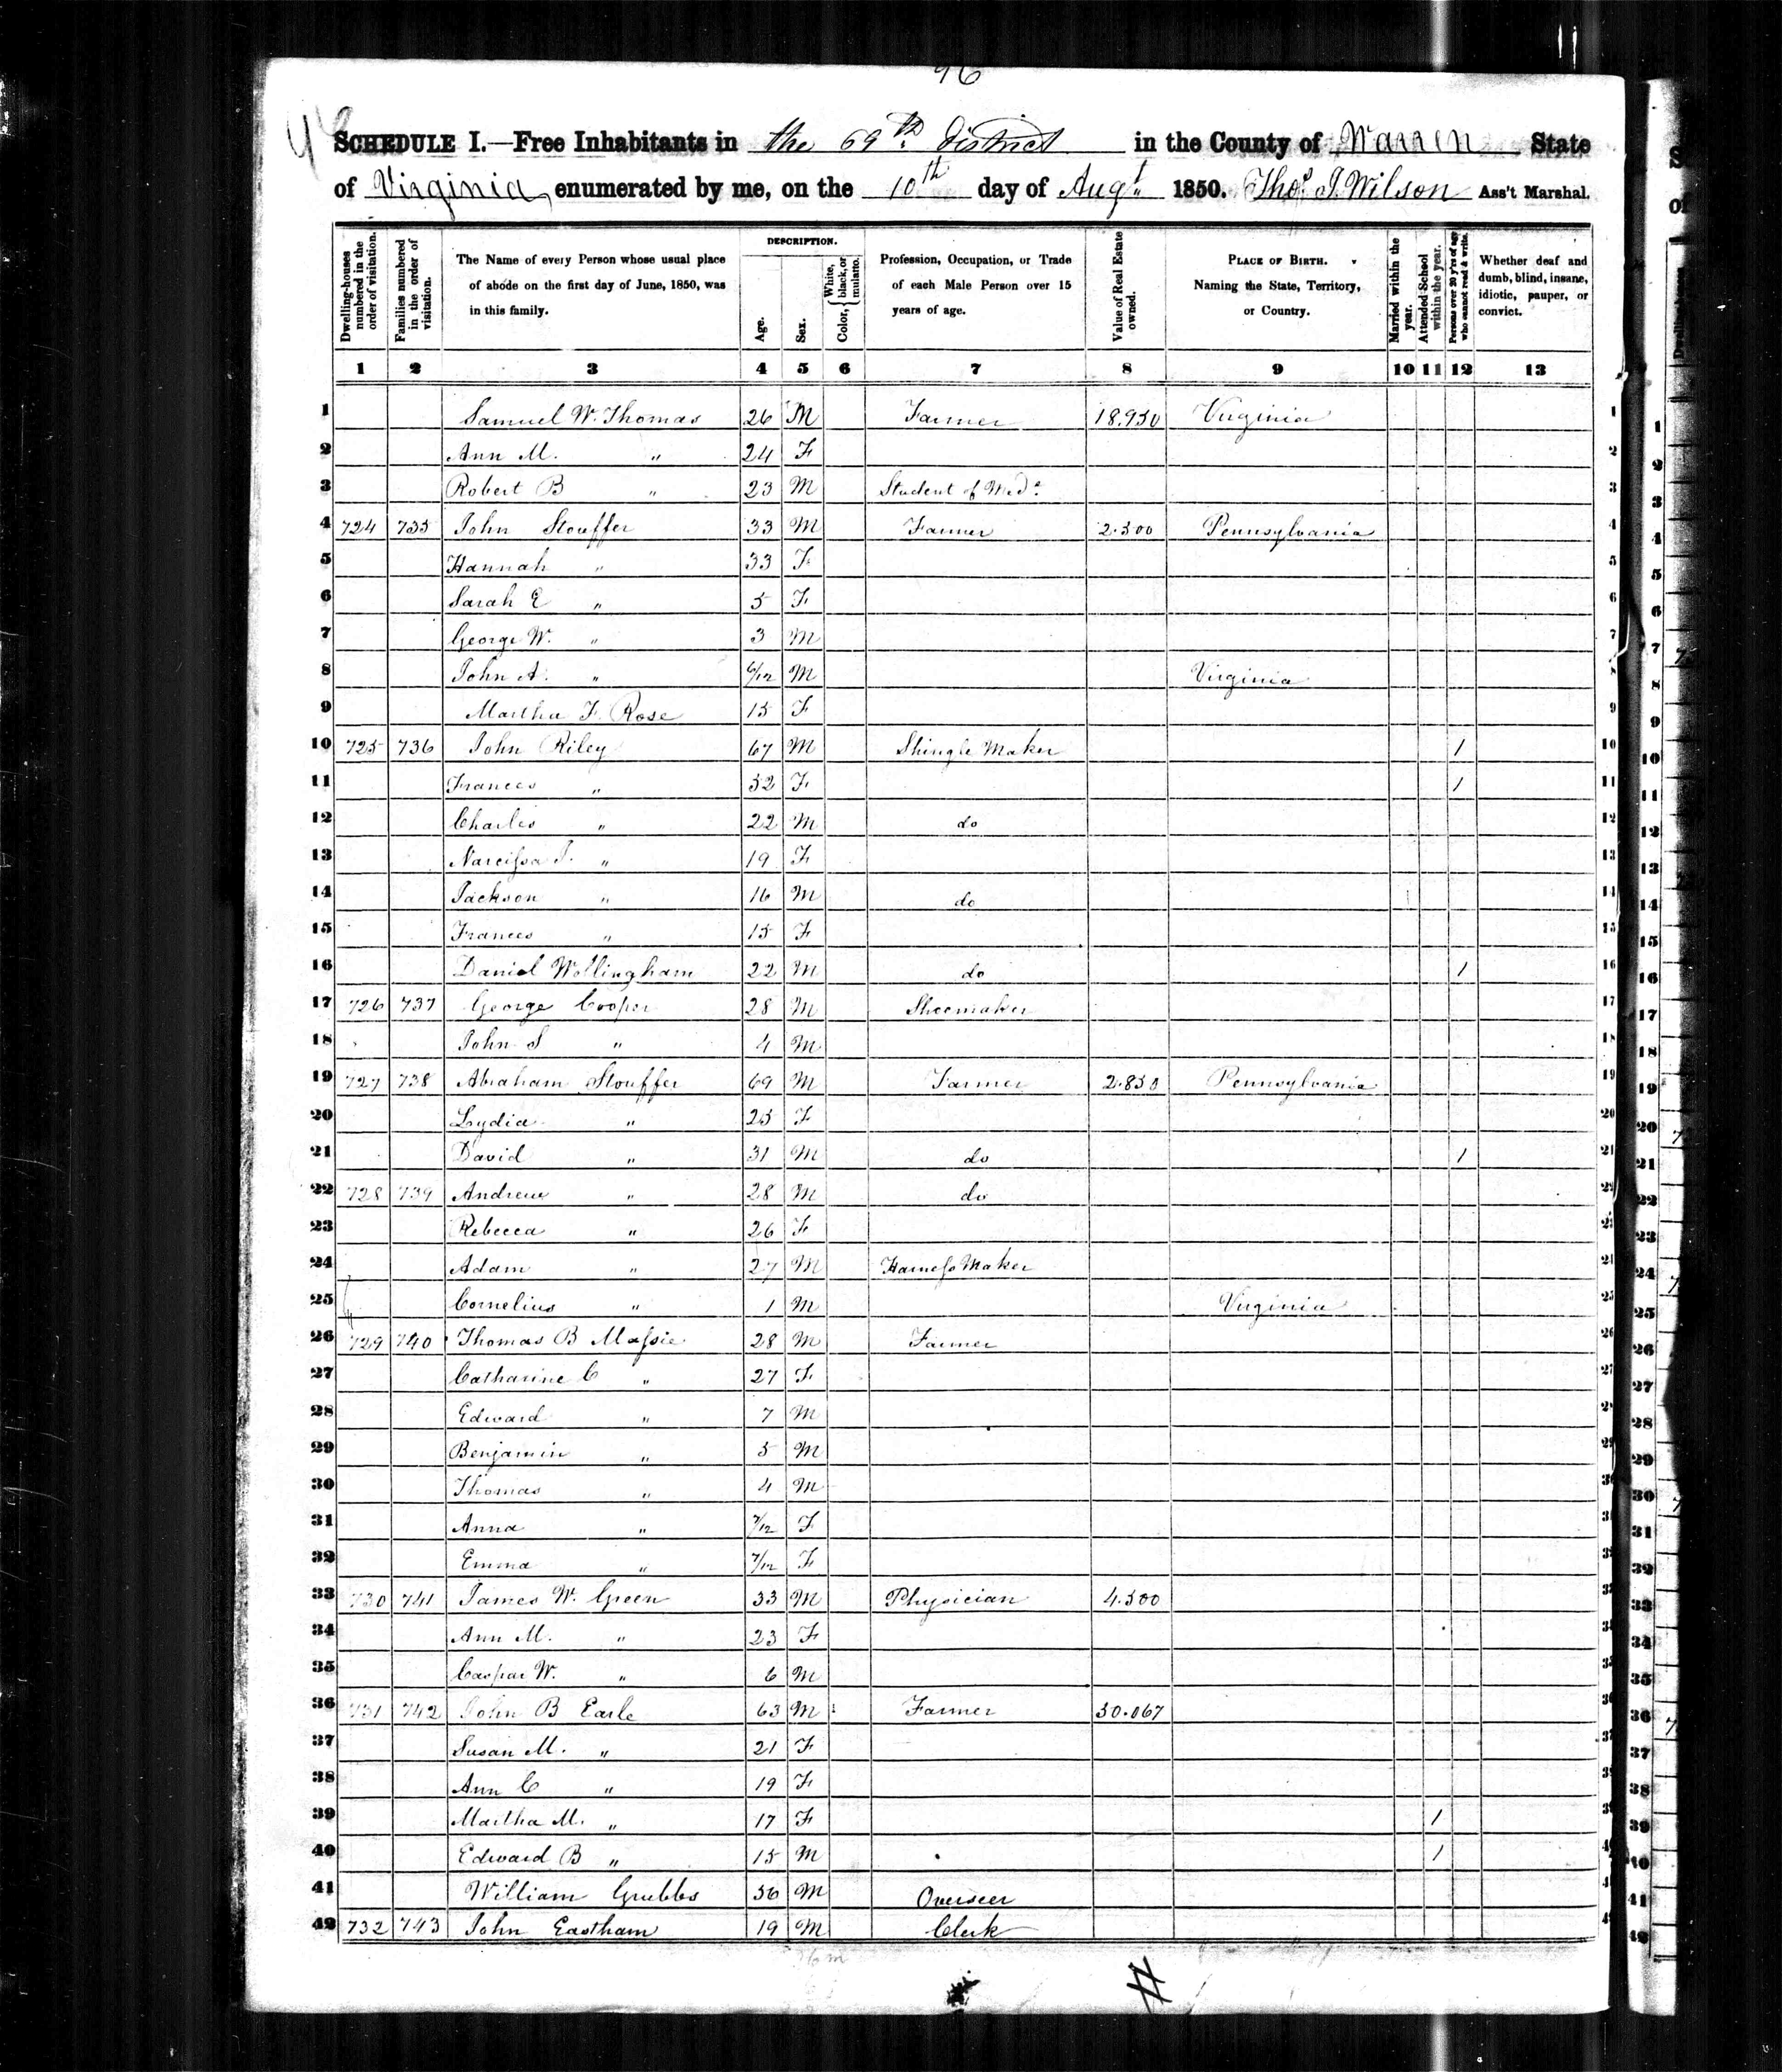 96
SCHEDULE I.—Free Inhabitants in the 69th District in the County of Warren State
of Virginia enumerated by me, on the 10th day of Augt. 1850. Thos. J. Wilson Ass't Marshal.
Dwelling-houses numbered in the order of visitation.
Families numbered in the order of visitation.
The Name of every Person whose usual place of abode on the first day of June, 1850, was in this family.
DESCRIPTION.
Age.
Sex.
Color, { White, black, or mulatto.
Profession, Occupation, or Trade of each Male Person over 15 years of age.
Value of Real Estate owned.
PLACE OF BIRTH. Naming the State, Territory, or Country.
Married within the year.
Attended School within the year.
Persons over 20 y'rs of age who cannot read & write.
Whether deaf and dumb, blind, insane, idiotic, pauper, or convict.
1 2 3 4 5 6 7 8 9 10 11 12 13
1 Samuel W. Thomas 26 M Farmer 18.950 Virginia 1
2 Ann M. " 24 F 2
3 Robert B " 23 M Student of Medn. 3
4 724 735 John Stouffer 33 M Farmer 2.500 Pennsylvania 4
5 Hannah " 33 F 5
6 Sarah E " 5 F 6
7 George W. " 3 M 7
8 John A. " 6/12 M Virginia 8
9 Martha F. Rose 15 F 9
10 725 736 John Riley 67 M Shingle Maker 1 10
11 Frances " 52 F 1 11
12 Charles " 22 M do 12
13 Narcissa J. " 19 F 13
14 Jackson " 16 M do 14
15 Frances " 15 F 15
16 Daniel Wollingham 22 M do 1 16
17 726 737 George Cooper 28 M Shoemaker 17
18 John S " 4 M 18
19 727 738 Abraham Stouffer 69 M Farmer 2.850 Pennsylvania 19
20 Lydia " 25 F 20
21 David " 31 M do 1 21
22 728 739 Andrew " 28 M do 22
23 Rebecca " 26 F 23
24 Adam " 27 M Harness Maker 24
25 Cornelius " 1 M Virginia 25
26 729 740 Thomas B Massie 28 M Farmer 26
27 Catharine C " 27 F 27
28 Edward " 7 M 28
29 Benjamin " 5 M 29
30 Thomas " 4 M 30
31 Anna " 7/12 F
32 Emma " 7/12 F
33 730 741 James W. Green 33 M Physician 4.500
34 Ann M. " 23 F
35 Caspar W. " 6 M
36 731 742 John B Earle 63 M Farmer 30.067
37 Susan M. " 21 F
38 Ann C " 19 F
39 Martha M. " 17 F 1
40 Edward B " 15 M 1
41 William Grubbs 56 M Overseer
42 732 743 John Eastham 19 M Clerk